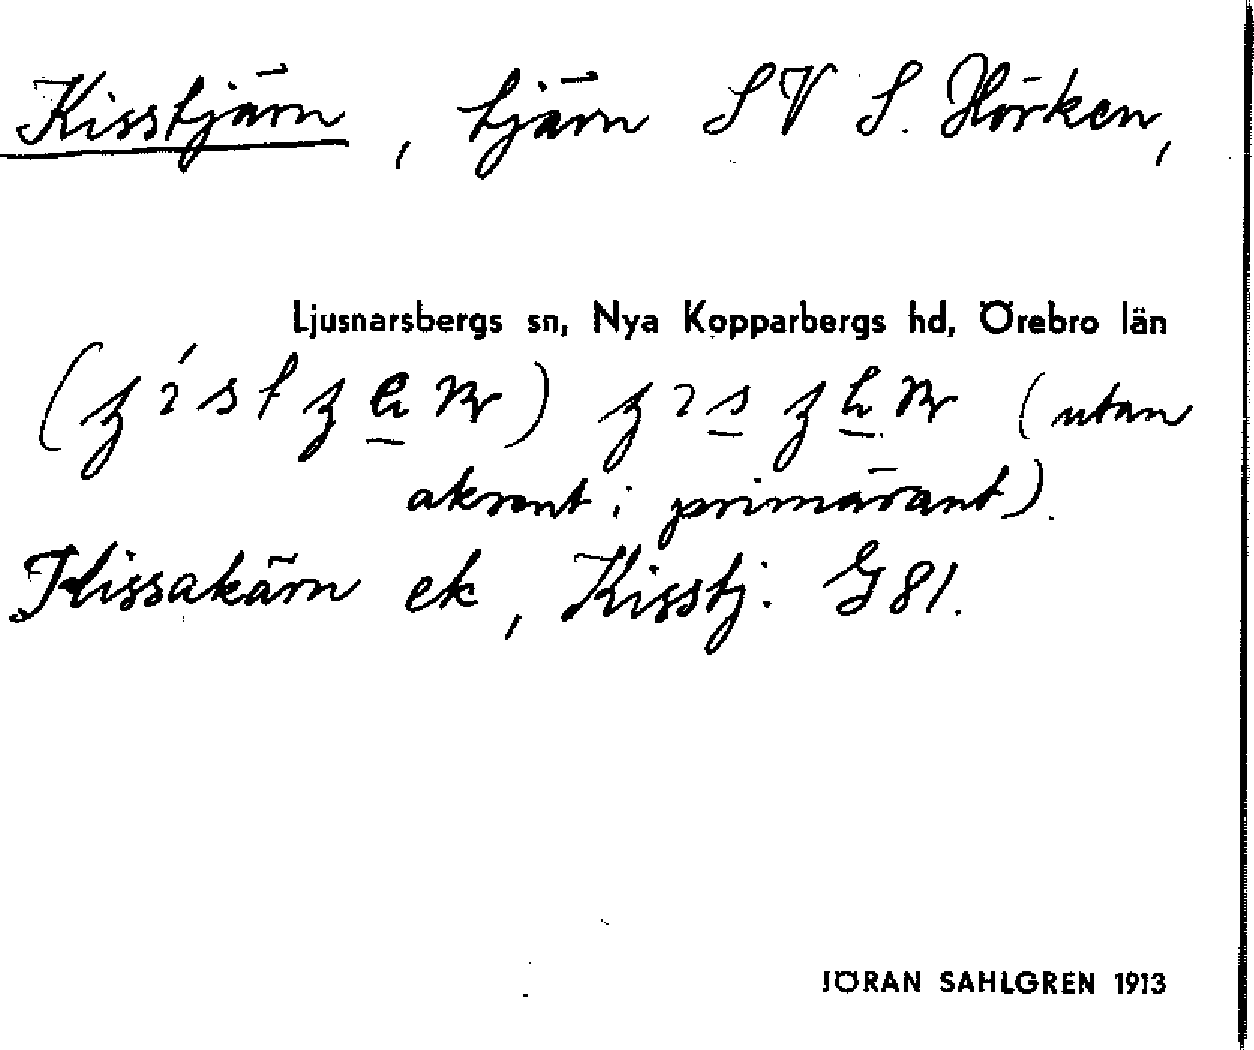 Kisstjärn, tjärn SV S. Hörken,
Ljusnarsbergs sn, Nya Kopparbergs hd, Örebro län
(utan
akcent i primärant).
Kissakärn ek, Kisstj. G 81.
JÖRAN SAHLGREN 1913